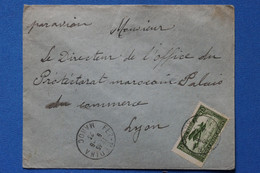 par avion Monsieur
le Directeur de l'office du
Protectorat marocain Palais
du commerce
Lyon